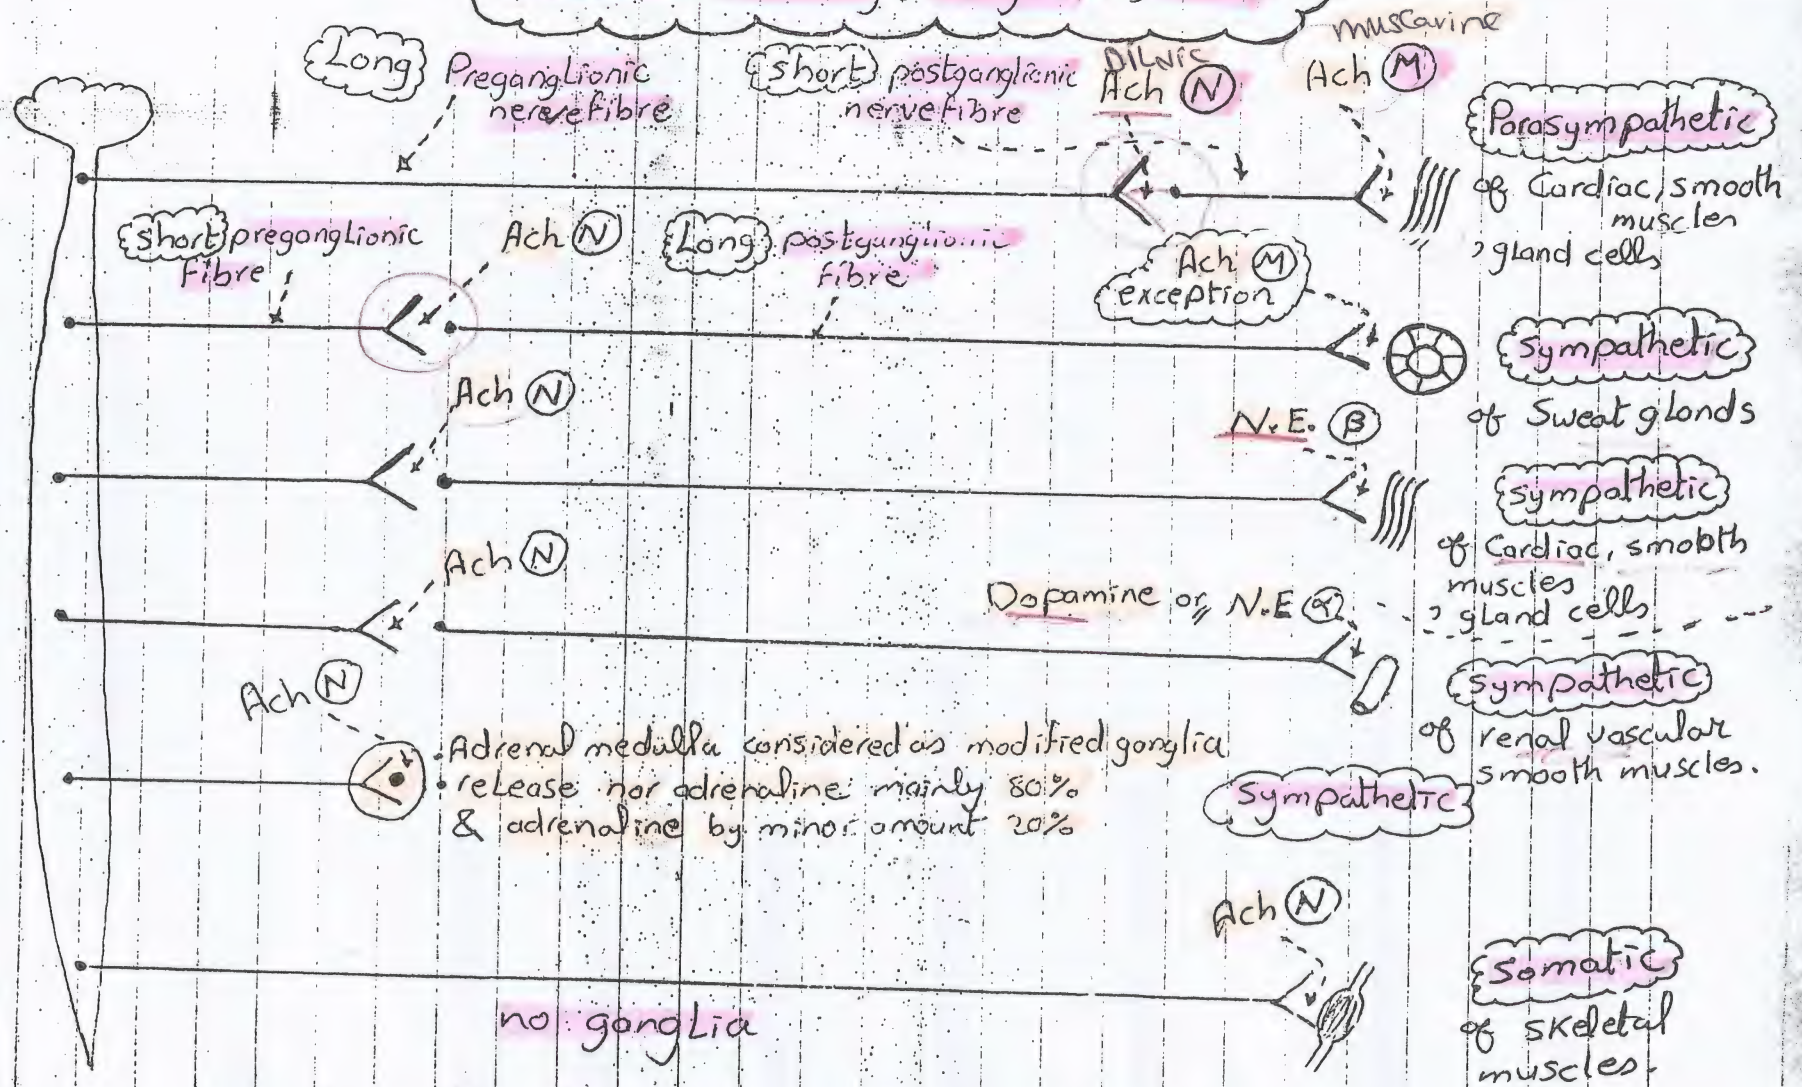 muscarine
Long Preganglionic
nerve fibre
short postganglionic
nerve fibre
Ach N
Ach M
Parasympathetic
of Cardiac, smooth
muscles
, gland cells
short preganglionic
fibre
Ach N
Long postganglionic
fibre
Ach M
exception
Sympathetic
of Sweat glands
Ach N
N.E. β
Sympathetic
of Cardiac, smooth
muscles
, gland cells
Ach N
Dopamine or N.E α
Sympathetic
of renal vascular
smooth muscles.
Ach N
• Adrenal medulla considered as modified ganglia
• release nor adrenaline mainly 80%
& adrenaline by minor amount 20%
Sympathetic
Ach N
no ganglia
Somatic
of skeletal
muscles.